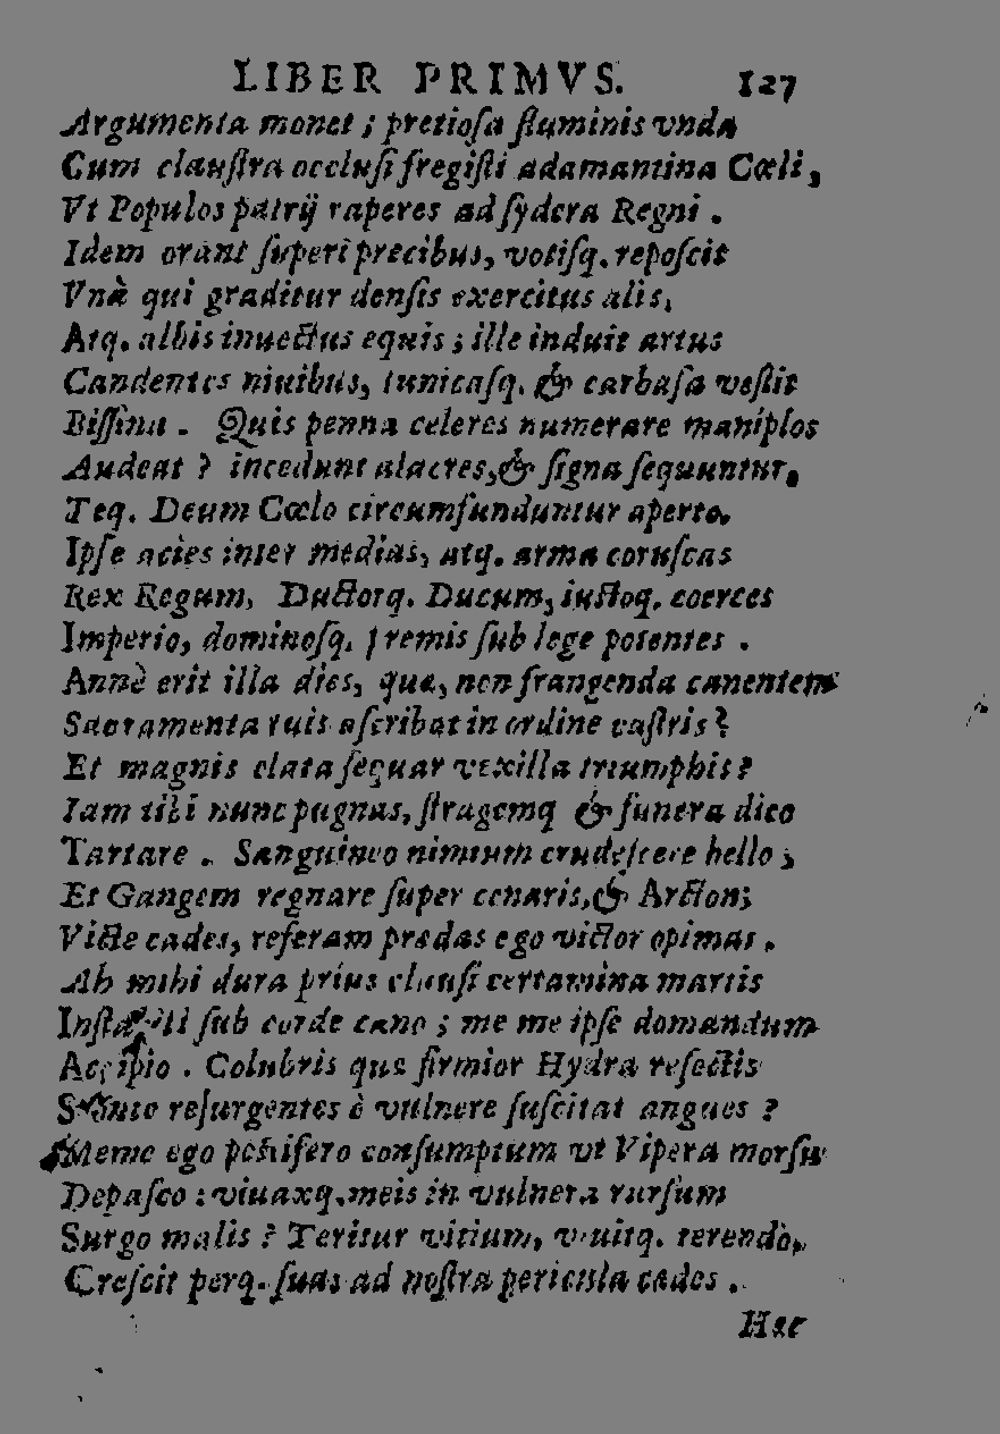 LIBER PRIMVS. 127
Argumenta monet ; pretioſa fluminis vnda
Cum clauſtra occluſi fregiſti adamantina Cœli,
Vt Populos patrij raperes ad ſydera Regni .
Idem orant ſuperi precibus, votiſq. repoſcit
Vnà qui graditur denſis exercitus alis,
Atq. albis inuectus equis ; ille induit artus
Candentes niuibus, tunicaſq. & carbaſa veſtit
Biſſina . Quis penna celeres numerare maniplos
Audeat ? incedunt alacres, & ſigna ſequuntur,
Teq. Deum Cœlo circumfunduntur aperto.
Ipſe acies inter medias, atq. arma coruſcas
Rex Regum, Ductorq. Ducum, iuſtoq. coerces
Imperio, dominoſq. premis ſub lege potentes .
Annè erit illa dies, quæ, non frangenda canentem
Sacramenta tuis aſcribat in ordine caſtris?
Et magnis elata ſequar vexilla triumphis?
Iam tibi nunc pugnas, ſtragemq & funera dico
Tartare . Sanguineo nimium crudeſcere bello ;
Et Gangem regnare ſuper cenaris, & Arcton;
Victe cades, referam prædas ego victor opimas .
Ah mihi dura prius clauſi certamina martis
ſub corde cano ; me me ipſe domandum
Accipio . Colubris quæ firmior Hydra reſectis
reſurgentes è vulnere ſuſcitat angues ?
Meme ego peſtifero conſumptum vt Vipera morſu
Depaſco : viuaxq. meis in vulnera rurſum
Surgo malis ? Teritur vitium, viuitq. terendo,
Creſcit perq. ſuas ad noſtra pericula cædes .
Hæc